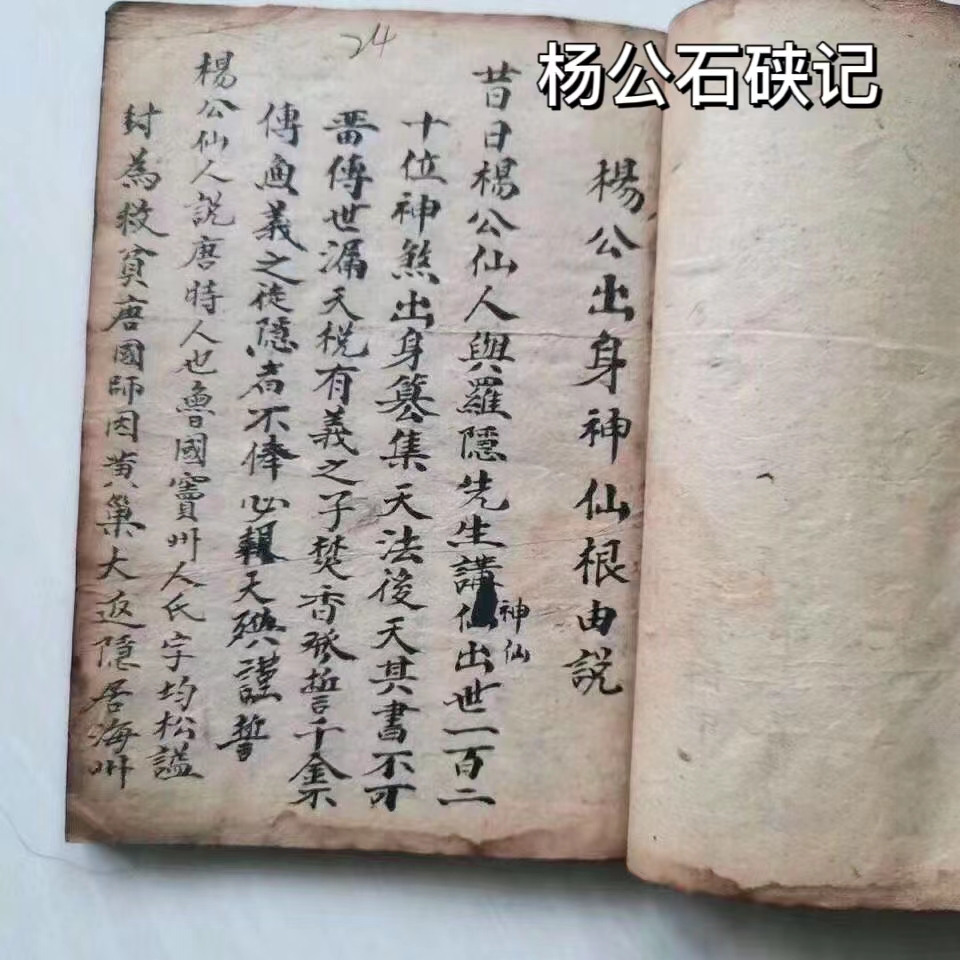 杨公石硖记
24
楊公出身神仙根由説
昔日楊公仙人與羅隱先生講出世一百二
神仙
十位神煞出身簒集天法後天其書不可
傳世漏天税有義之子焚香發誓千金不
傳義之徒隱者不俸必報天殃謹誓
楊公仙人説唐時人也魯國竇州人氏字均松謚
封為救貧唐國師因黄巢大返隱居海州